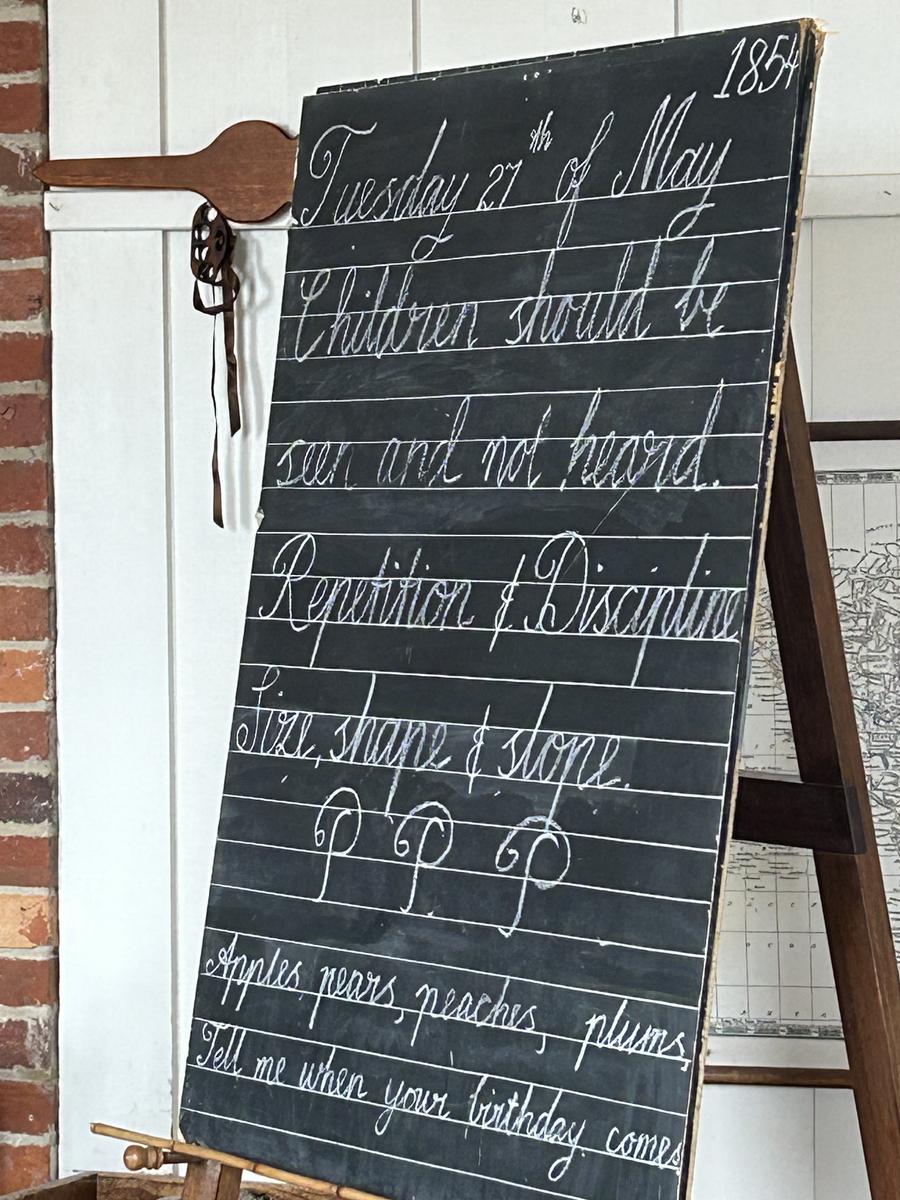 1854
Tuesday 27th of May
Children should be
seen and not heard.
Repetition & Discipline
Size, shape & slope.
P P P
Apples, pears, peaches, plums,
Tell me when your birthday comes